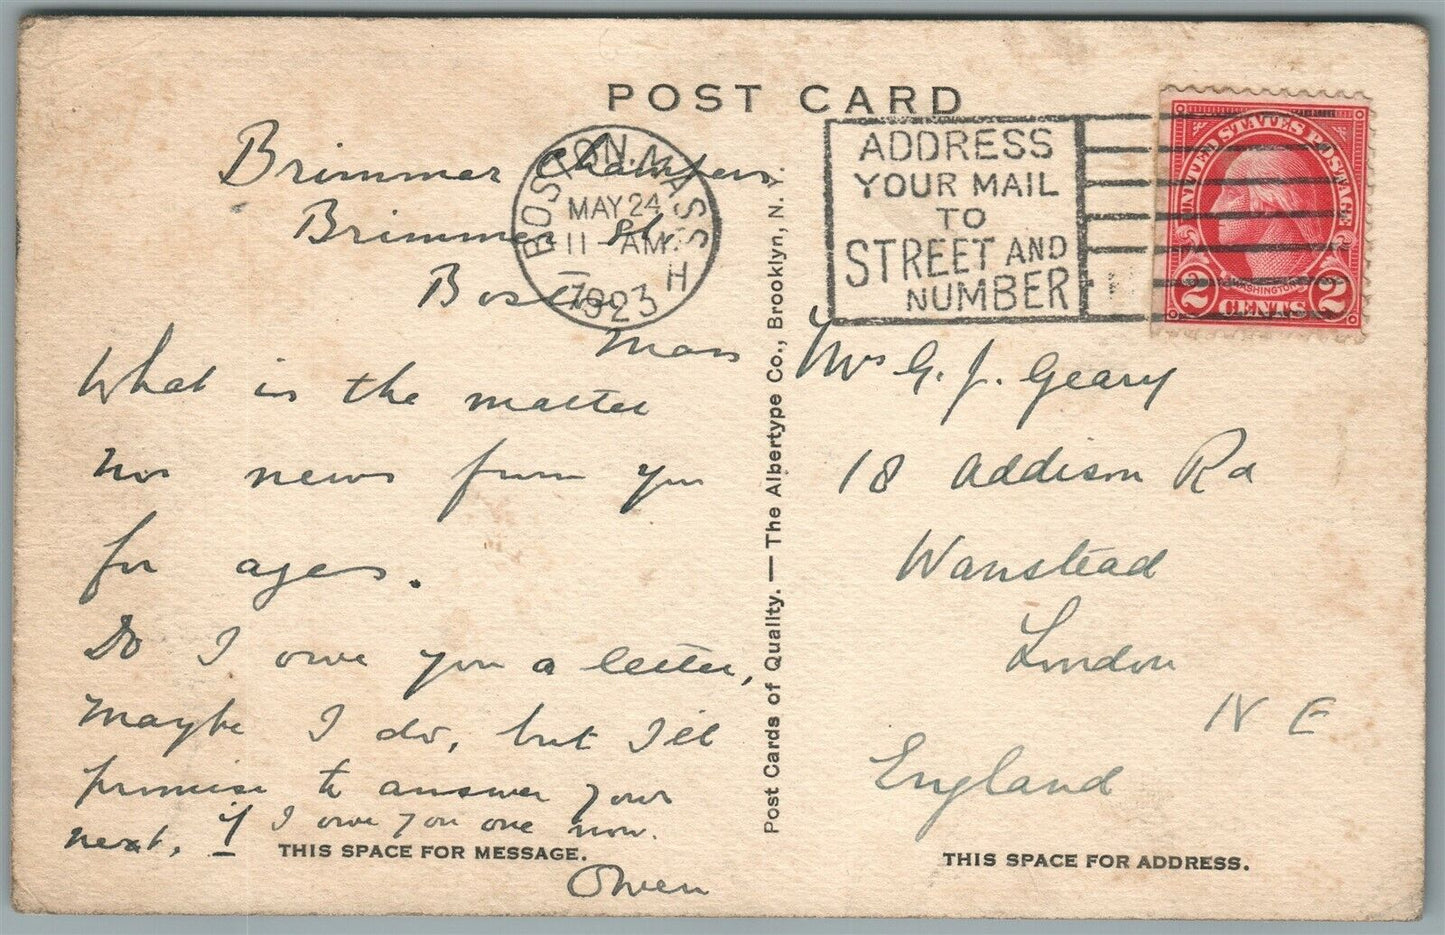 POST CARD
BOSTON, MASS.
MAY 24
11 - AM
1923
H
ADDRESS
YOUR MAIL
TO
STREET AND
NUMBER
UNITED STATES POSTAGE
WASHINGTON
2 CENTS 2
Brimmer Chambers
Brimmer St.
Boston
Mass
What is the matter
no news from you
for ages.
Do I owe you a letter,
maybe I do, but I'll
promise to answer your
next, if I owe you one now.
Owen
THIS SPACE FOR MESSAGE.
Post Cards of Quality. — The Albertype Co., Brooklyn, N. Y.
Mrs G. J. Geary
18 Addison Rd
Wanstead
London
N E
England
THIS SPACE FOR ADDRESS.